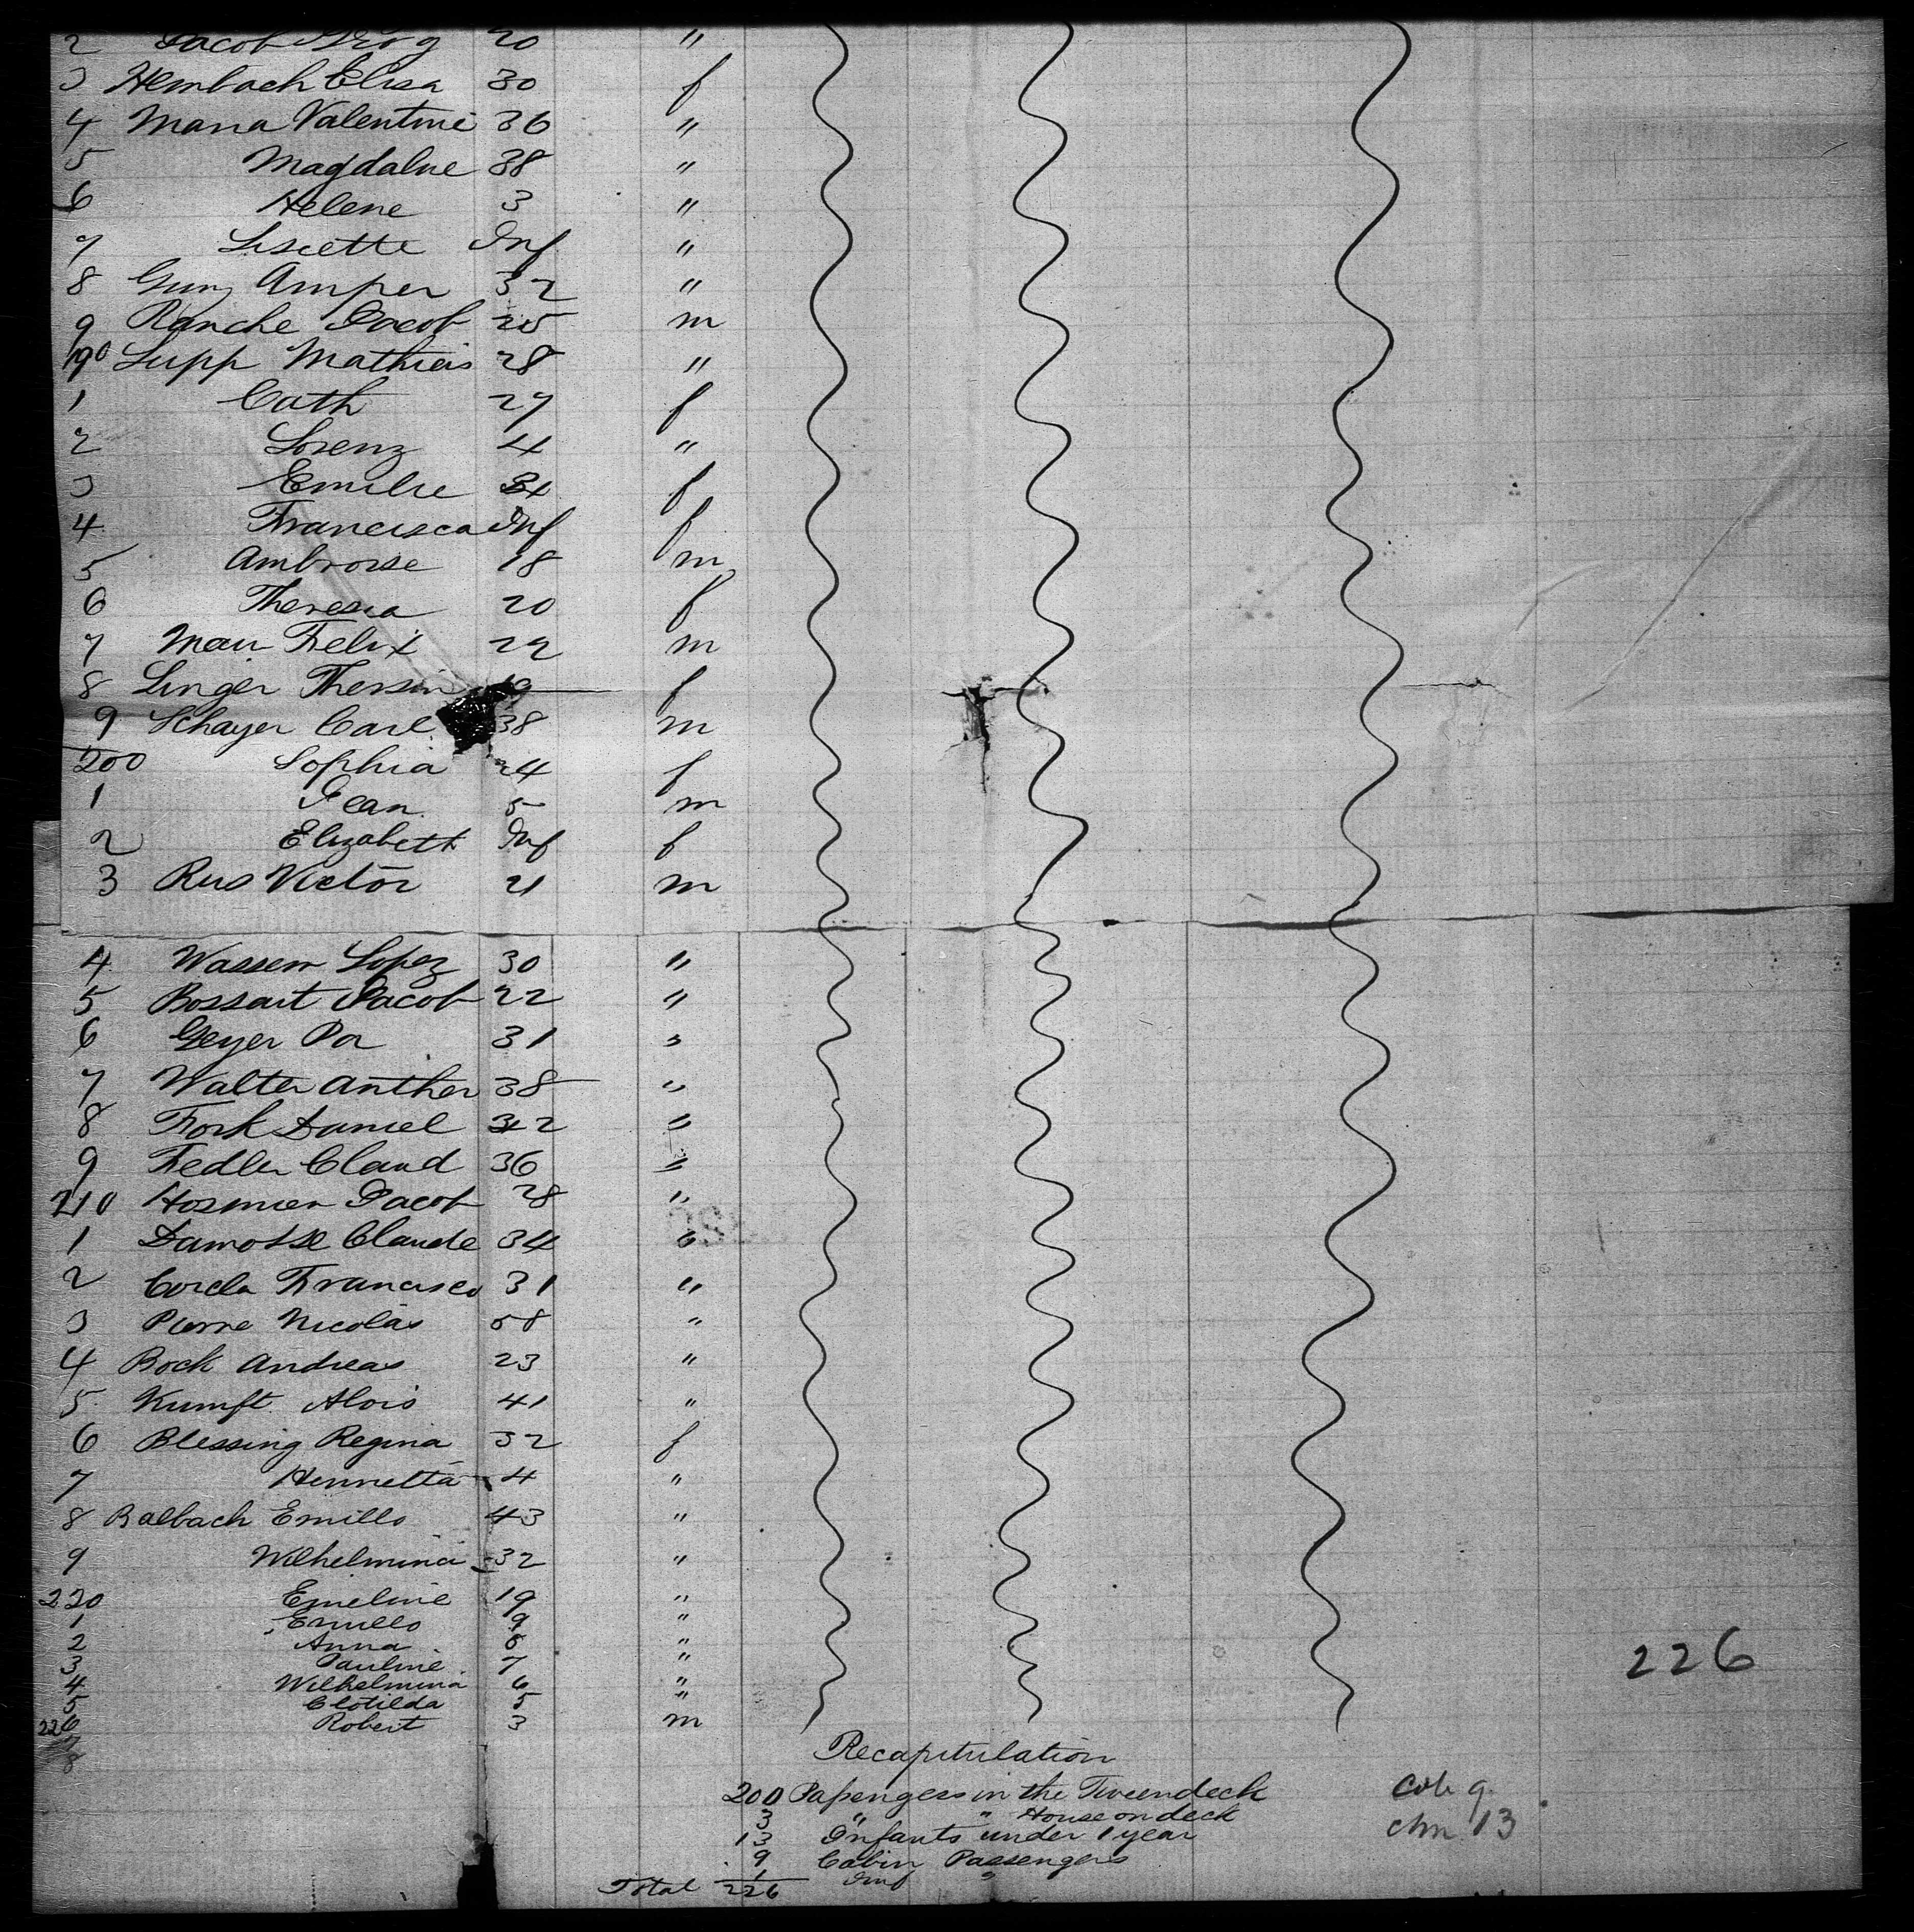 2 Jacob Georg 20 "
3 Hembach Elisa 30 f
4 Maria Valentine 36 "
5 Magdalne 38 "
6 Helene 3 "
7 Lisette Inf "
8 Amper 32 "
9 Ranche Jacob 25 m
190 Lupp Mathias 28 "
1 Cath 27 f
2 Lorenz 4 "
3 Emilie f
4 Francisca Inf f
5 Ambroise 18 m
6 Theresia 20 f
7 Felix 22 m
8 Linger 19 f
9 Schayer Carl 38 m
200 Sophia 24 f
1 Jean 5 m
2 Elizabeth Inf f
3 Rus Victor 21 m
4 Lopez 30 "
5 Bossart Jacob 22 "
6 Geyer 31 "
7 Walter Anther 38 "
8 Fork Daniel "
9 Fedler Claud 36 "
210 Hosmier Jacob 28 "
1 Damosse Claude 34 "
2 Francisco 31 "
3 Pierre Nicolas 58 "
4 Bock Andreas 23 "
5 Kumft Alois 41 "
6 Blessing Regina 32 f
7 Henrietta 4 "
8 Balbach Emillo 43 "
9 Wilhelmina 32 "
220 Emeline 19 "
1 Emillo 9 "
2 Anna 8 "
3 Pauline 7 "
4 Wilhelmina 6 "
5 Clotilda 5 "
226 Robert 3 m
226
Recapitulation
200 Passengers in the Tweendeck
3 " " House on deck
13 Infants under 1 year
9 Cabin Passengers
1 Inf "
Total 226
13